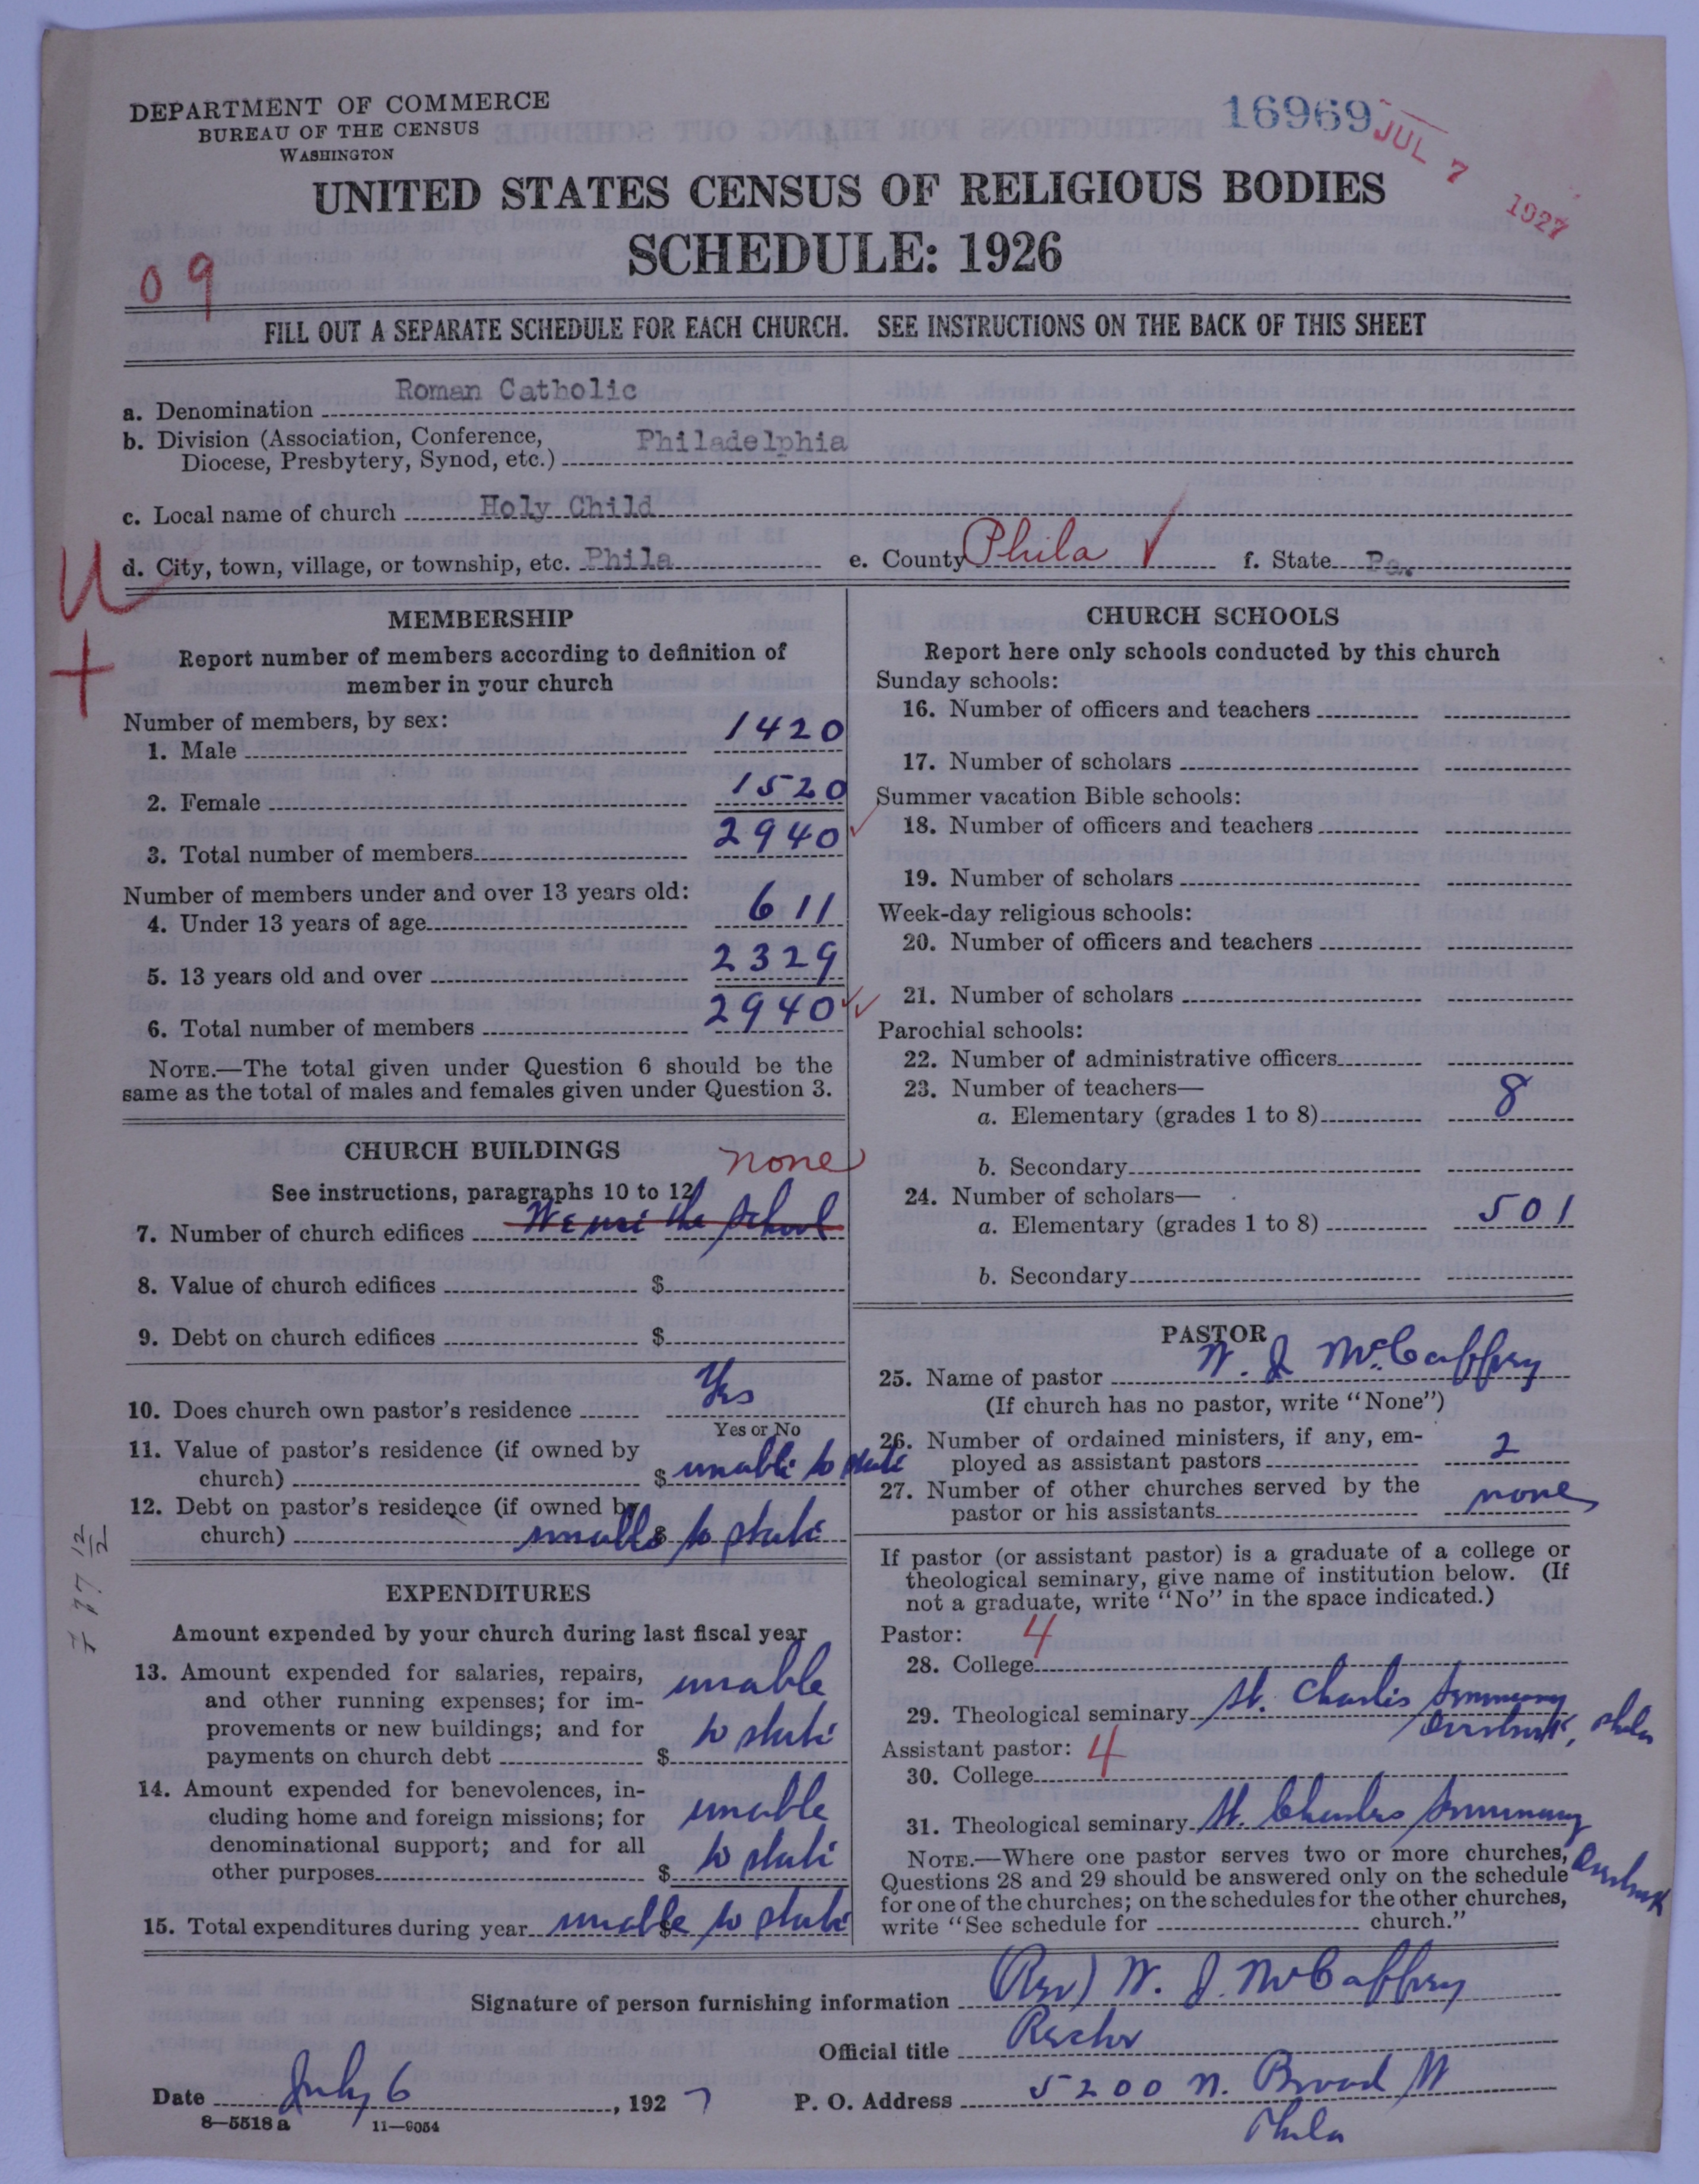 DEPARTMENT OF COMMERCE
BUREAU OF THE CENSUS
WASHINGTON
16969
JUL 7 1927
UNITED STATES CENSUS OF RELIGIOUS BODIES
SCHEDULE: 1926
09
FILL OUT A SEPARATE SCHEDULE FOR EACH CHURCH. SEE INSTRUCTIONS ON THE BACK OF THIS SHEET
a. Denomination Roman Catholic
b. Division (Association, Conference,
Diocese, Presbytery, Synod, etc.) Philadelphia
c. Local name of church Holy Child
d. City, town, village, or township, etc. Phila e. County Phila f. State Pa.
U
+
MEMBERSHIP
Report number of members according to definition of
member in your church
Number of members, by sex:
1. Male 1420
2. Female 1520
3. Total number of members 2940
Number of members under and over 13 years old:
4. Under 13 years of age 611
5. 13 years old and over 2329
6. Total number of members 2940
NOTE.—The total given under Question 6 should be the
same as the total of males and females given under Question 3.
CHURCH BUILDINGS
none
See instructions, paragraphs 10 to 12
7. Number of church edifices We use the School
8. Value of church edifices $
9. Debt on church edifices $
10. Does church own pastor's residence Yes
Yes or No
11. Value of pastor's residence (if owned by
church) $ unable to state
12. Debt on pastor's residence (if owned by
church) $ unable to state
EXPENDITURES
Amount expended by your church during last fiscal year
13. Amount expended for salaries, repairs,
and other running expenses; for im-
provements or new buildings; and for
payments on church debt $ unable to state
14. Amount expended for benevolences, in-
cluding home and foreign missions; for
denominational support; and for all
other purposes $ unable to state
15. Total expenditures during year $ unable to state
CHURCH SCHOOLS
Report here only schools conducted by this church
Sunday schools:
16. Number of officers and teachers
17. Number of scholars
Summer vacation Bible schools:
18. Number of officers and teachers
19. Number of scholars
Week-day religious schools:
20. Number of officers and teachers
21. Number of scholars
Parochial schools:
22. Number of administrative officers
23. Number of teachers—
a. Elementary (grades 1 to 8) 8
b. Secondary
24. Number of scholars—
a. Elementary (grades 1 to 8) 501
b. Secondary
PASTOR
25. Name of pastor W. J. McCaffrey
(If church has no pastor, write "None")
26. Number of ordained ministers, if any, em-
ployed as assistant pastors 2
27. Number of other churches served by the
pastor or his assistants none
If pastor (or assistant pastor) is a graduate of a college or
theological seminary, give name of institution below. (If
not a graduate, write "No" in the space indicated.)
Pastor: 4
28. College
29. Theological seminary St. Charles Seminary
Overbrook, Phila
Assistant pastor: 4
30. College
31. Theological seminary St. Charles Seminary
Overbrook
NOTE.—Where one pastor serves two or more churches,
Questions 28 and 29 should be answered only on the schedule
for one of the churches; on the schedules for the other churches,
write "See schedule for church."
Signature of person furnishing information (Rev) W. J. McCaffrey
Official title Rector
Date July 6, 1927 P. O. Address 5200 N. Broad St
Phila
8—5518 a 11—9054